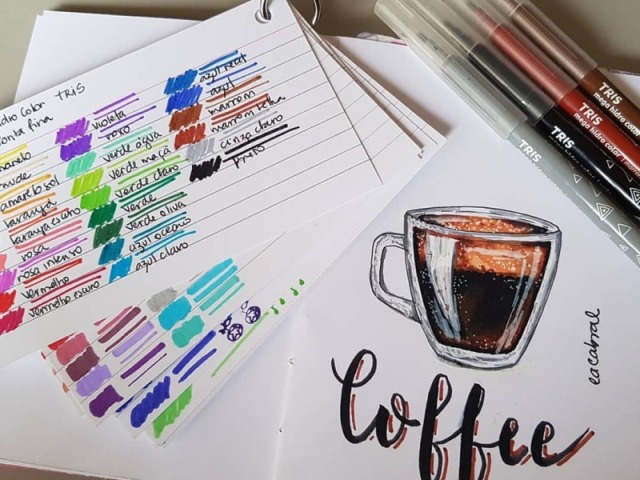 TRIS
violeta
roxo
verde água
verde maçã
verde claro
verde
verde oliva
azul oceano
azul claro
azul real
azul
marrom
marrom telha
cinza claro
preto
laranja
rosa
rosa intenso
vermelho
vermelho escuro
TRIS
mega hidro color
TRIS
mega hidro color
TRIS
mega hidro color
TRIS
eacabral
Coffee